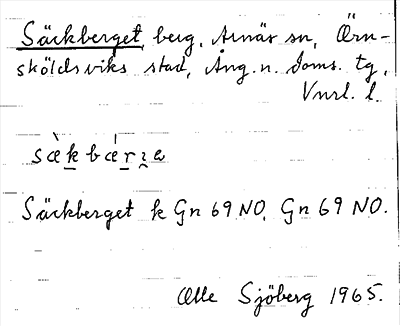 Säckberget, berg, Arnäs sn, Örn-
sköldsviks stad, Ång. n. doms. tg,
Vnrl. l.
sæ̀kbǽrʒa
Säckberget k Gn 69 NO, Gn 69 NO.
Olle Sjöberg 1965.